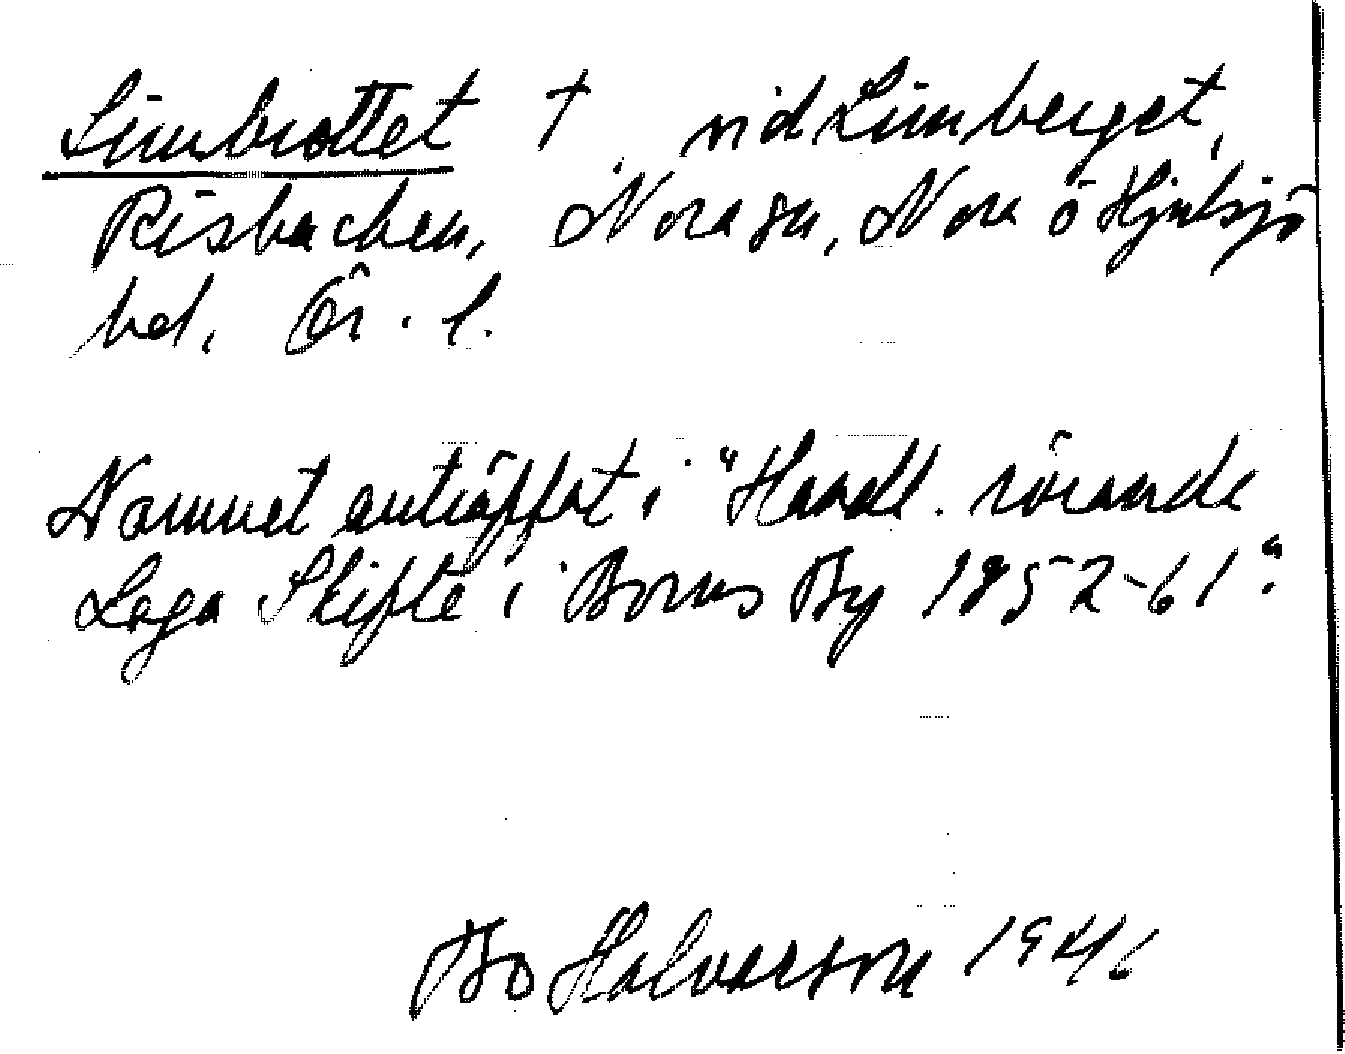 Limbrottet † vid Limberget,
Risbacken, Nora sn, Nora o Hjulsjö
bd, Ör. l.
Namnet anträffat i "Handl. rörande
Laga Skifte i Borns By 1852-61".
Bo Halvarson 1941